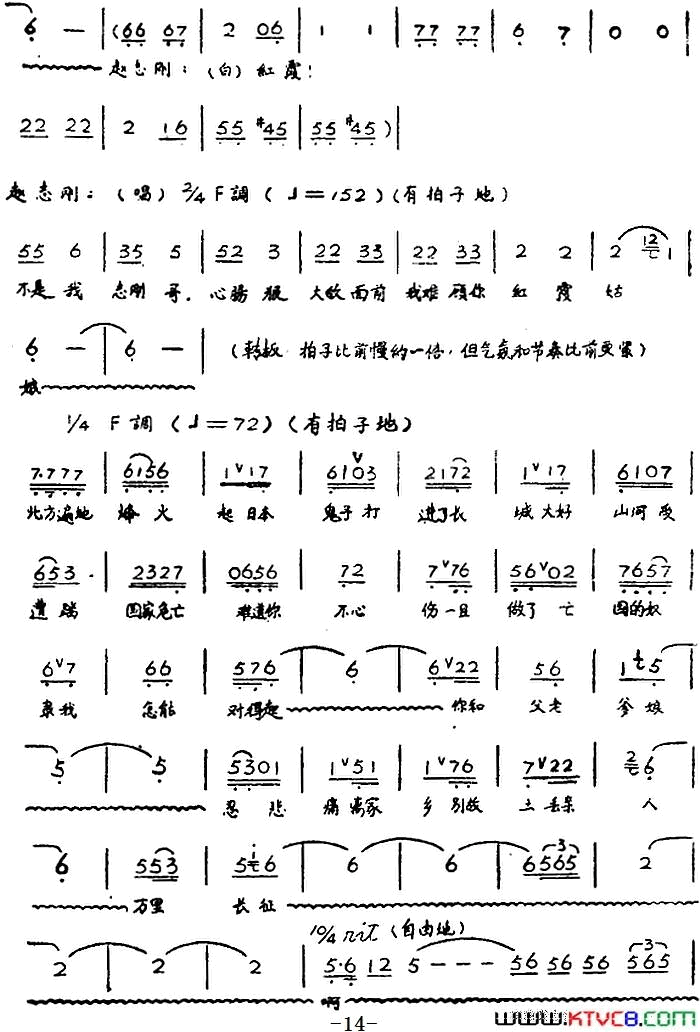 6 — | (66 67 | 2 06 | 1 1 | 77 77 | 6 7 | 0 0 |
赵志刚：(白) 紅霞！
22 22 | 2 16 | 55 #45 | 55 #45) |
赵志刚：(唱) 2/4 F調 (♩=152) (有拍子地)
55 6 | 35 5 | 52 3 | 22 33 | 22 33 | 2 2 | 2 12/七 1 |
不是 我 志刚 哥，心腸 狠 大敌 面前 我难 顾你 紅 霞 姑
6 — | 6 — | (轉板 拍子比前慢約一倍，但气氛和节奏比前更紧)
娘
1/4 F調 (♩=72) (有拍子地)
7.777 | 6156 | 1ᵛ17 | 6103 | 2172 | 1ᵛ17 | 6107
北方遍地 烽火 起日本 鬼子打 进了长 城大好 山河受
653. | 2327 | 0656 | 72 | 7ᵛ76 | 56ᵛ02 | 7657
遭踏 国家危亡 难道你 不心 伤一旦 做了亡 国的奴
6ᵛ7 | 66 | 576 | 6 | 6ᵛ22 | 56 | 1七5
隶我 怎能 对得起 你和 父老 爹娘
5 | 5 | 5301 | 1ᵛ51 | 1ᵛ76 | 7ᵛ22 | 2/七 6
忍悲 痛离家 乡别故 土丢亲 人
6 | 553 | 5 i/七 6 | 6 | 6 | 6565 | 2
万里 长征
10/4 rit (自由地)
2 | 2 | 2 | 5.6 12 5 — — — 56 56 56 565
啊
-14-
www.KTVC8.com